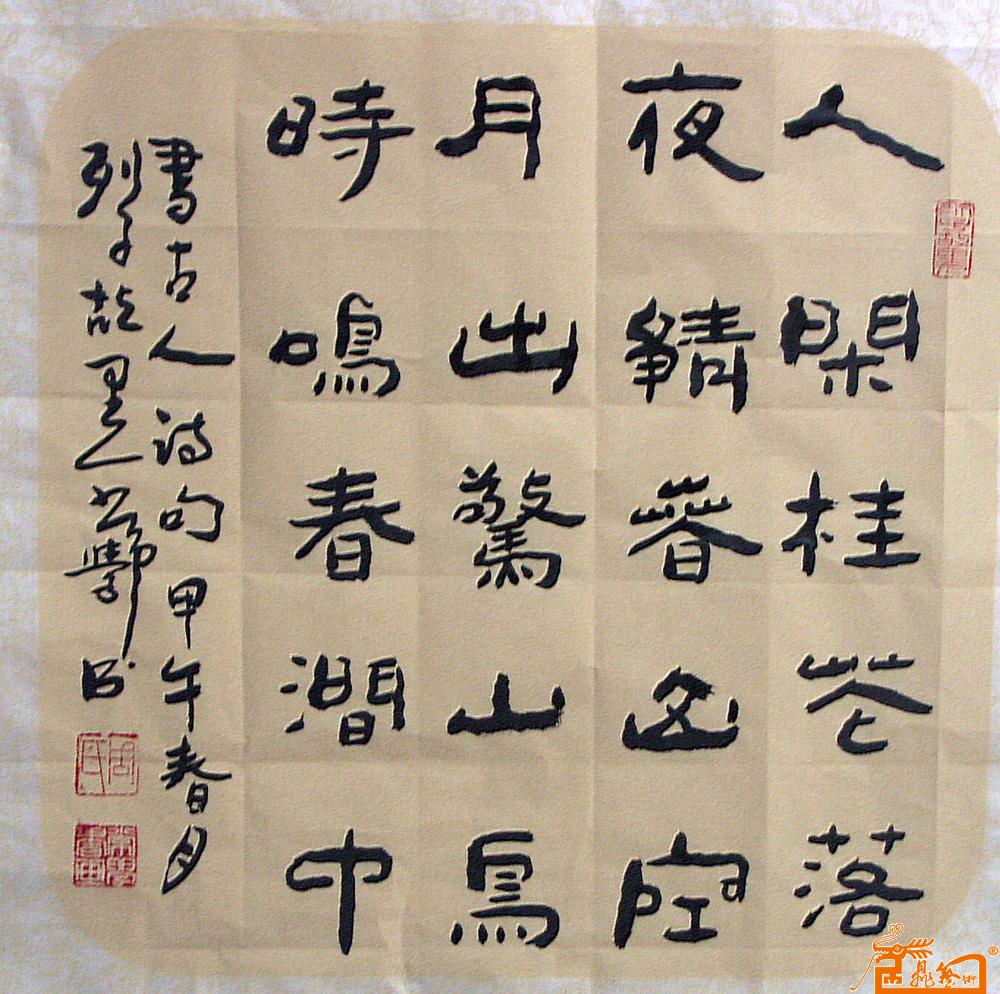 人閑桂花落
夜靜春空
月出驚山鳥
時鳴春澗中
書古人詩句甲午春月
列子故里